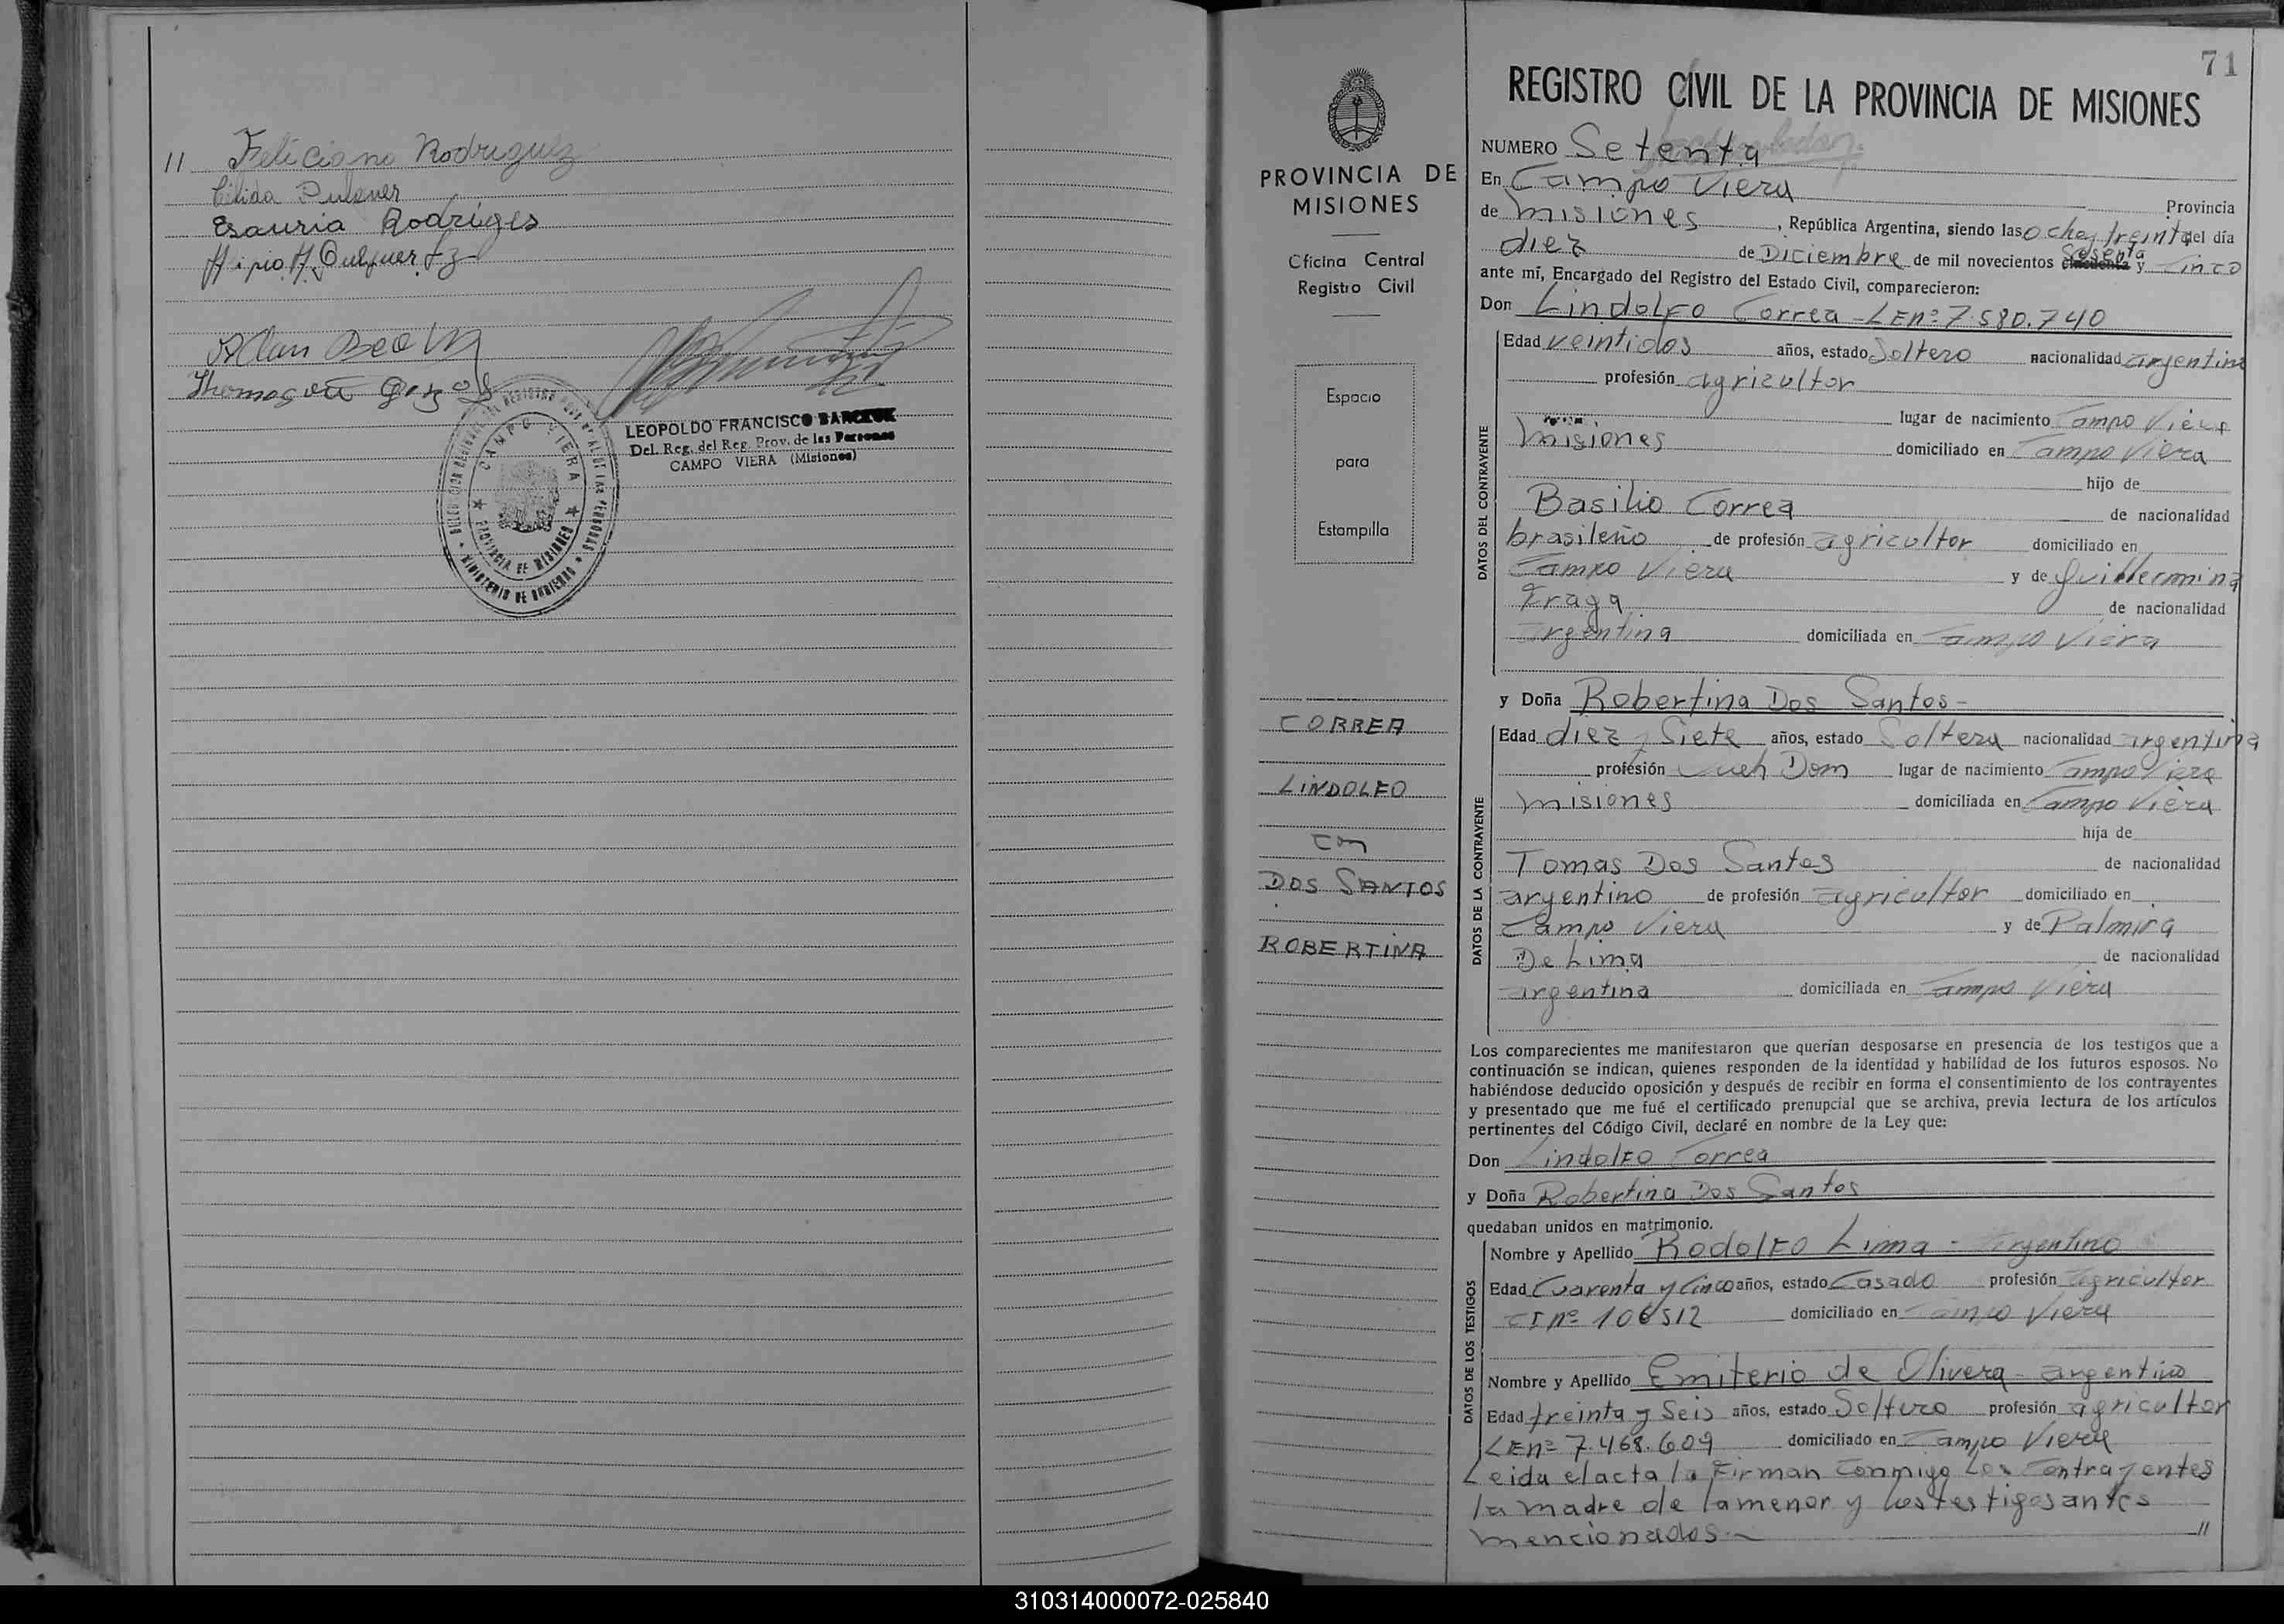 11 Feliciano Rodriguez
Elida Pulsner
Esauria Rodriges
LEOPOLDO FRANCISCO
Del. Reg. del Reg. Prov. de las Personas
CAMPO VIERA (Misiones)
CAMPO VIERA
PROVINCIA DE MISIONES
MINISTERIO DE GOBIERNO
PROVINCIA DE
MISIONES
Oficina Central
Registro Civil
Espacio
para
Estampilla
CORREA
LINDOLFO
con
DOS SANTOS
ROBERTINA
71
REGISTRO CIVIL DE LA PROVINCIA DE MISIONES
NUMERO Setenta
En Campo Viera Provincia
de Misiones, República Argentina, siendo las ocho y treinta del día
diez de Diciembre de mil novecientos cincuenta sesenta y Cinco
ante mí, Encargado del Registro del Estado Civil, comparecieron:
Don Lindolfo Correa - LEnº 7.580.740
DATOS DEL CONTRAYENTE
Edad veintidos años, estado Soltero nacionalidad argentino
profesión agricultor
lugar de nacimiento Campo Viera
Misiones domiciliado en Campo Viera
hijo de
Basilio Correa de nacionalidad
brasileño de profesión agricultor domiciliado en
Campo Viera y de Guillermina
Fraga de nacionalidad
argentina domiciliada en Campo Viera
y Doña Robertina Dos Santos -
DATOS DE LA CONTRAYENTE
Edad diez y Siete años, estado Soltera nacionalidad argentina
profesión Queh Dom lugar de nacimiento Campo Viera
Misiones domiciliada en Campo Viera
hija de
Tomas Dos Santos de nacionalidad
argentino de profesión agricultor domiciliado en
Campo Viera y de Palmira
De Lima de nacionalidad
argentina domiciliada en Campo Viera
Los comparecientes me manifestaron que querían desposarse en presencia de los testigos que a
continuación se indican, quienes responden de la identidad y habilidad de los futuros esposos. No
habiéndose deducido oposición y después de recibir en forma el consentimiento de los contrayentes
y presentado que me fué el certificado prenupcial que se archiva, previa lectura de los artículos
pertinentes del Código Civil, declaré en nombre de la Ley que:
Don Lindolfo Correa
y Doña Robertina Dos Santos
quedaban unidos en matrimonio.
DATOS DE LOS TESTIGOS
Nombre y Apellido Rodolfo Lima - argentino
Edad Cuarenta y Cinco años, estado Casado profesión agricultor
CI nº 106512 domiciliado en Campo Viera
Nombre y Apellido Emiterio de Olivera - argentino
Edad treinta y Seis años, estado Soltero profesión agricultor
LEnº 7.468.609 domiciliado en Campo Viera
Leida el acta la Firman conmigo los contrayentes
la madre de la menor y los testigos antes
mencionados - 11
310314000072-025840